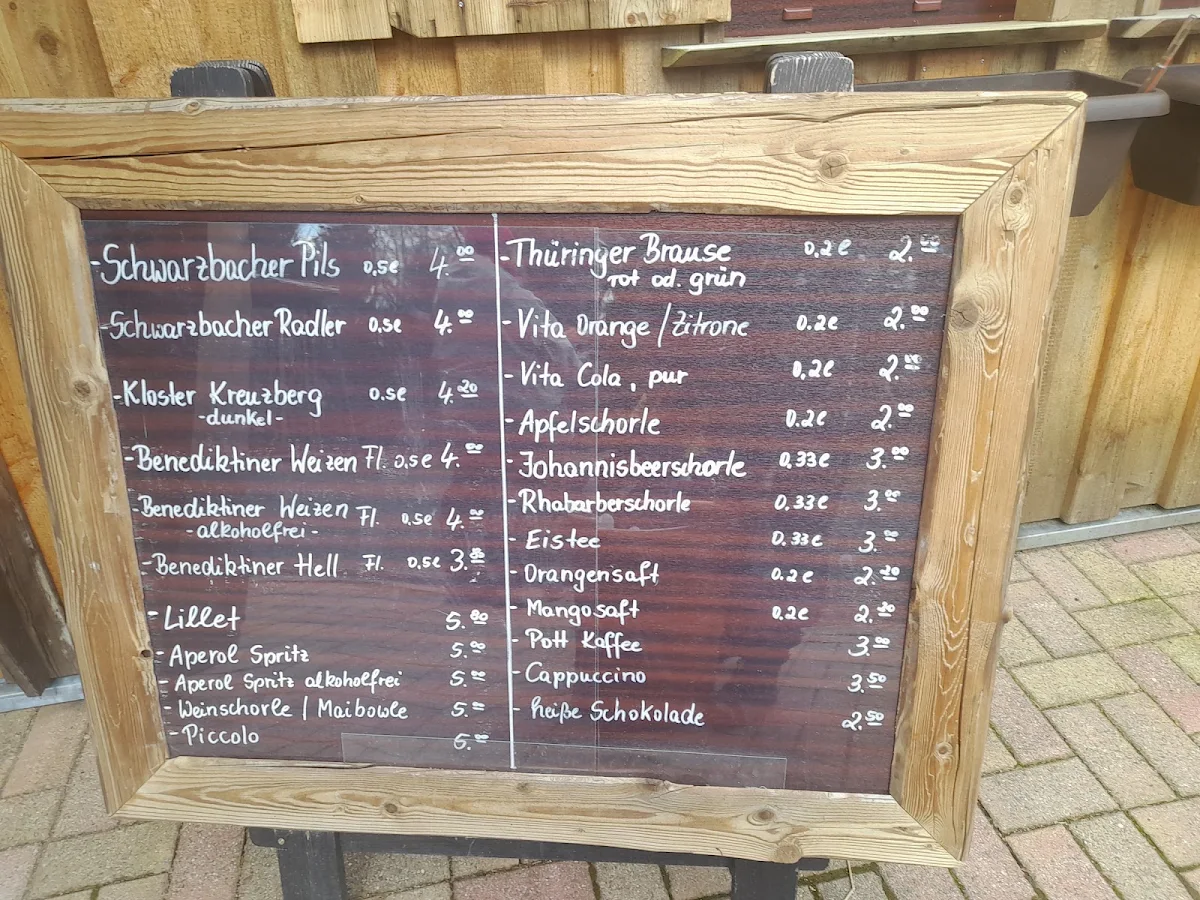 - Schwarzbacher Pils 0,5l 4.00
- Schwarzbacher Radler 0,5l 4.00
- Kloster Kreuzberg 0,5l 4.20
- dunkel -
- Benediktiner Weizen Fl. 0,5l 4.00
- Benediktiner Weizen Fl. 0,5l 4.00
- alkoholfrei -
- Benediktiner Hell Fl. 0,5l 3.80
- Lillet 5.00
- Aperol Spritz 5.00
- Aperol Spritz alkoholfrei 5.00
- Weinschorle / Maibowle 5.00
- Piccolo 5.00
- Thüringer Brause 0,2l 2.00
rot od. grün
- Vita Orange / Zitrone 0.2l 2.00
- Vita Cola, pur 0,2l 2.00
- Apfelschorle 0.2l 2.00
- Johannisbeerschorle 0,33l 3.00
- Rhabarberschorle 0,33l 3.00
- Eistee 0.33l 3.00
- Orangensaft 0.2l 2.20
- Mangosaft 0,2l 2.20
- Pott Kaffee 3.00
- Cappuccino 3.50
- heiße Schokolade 2.50